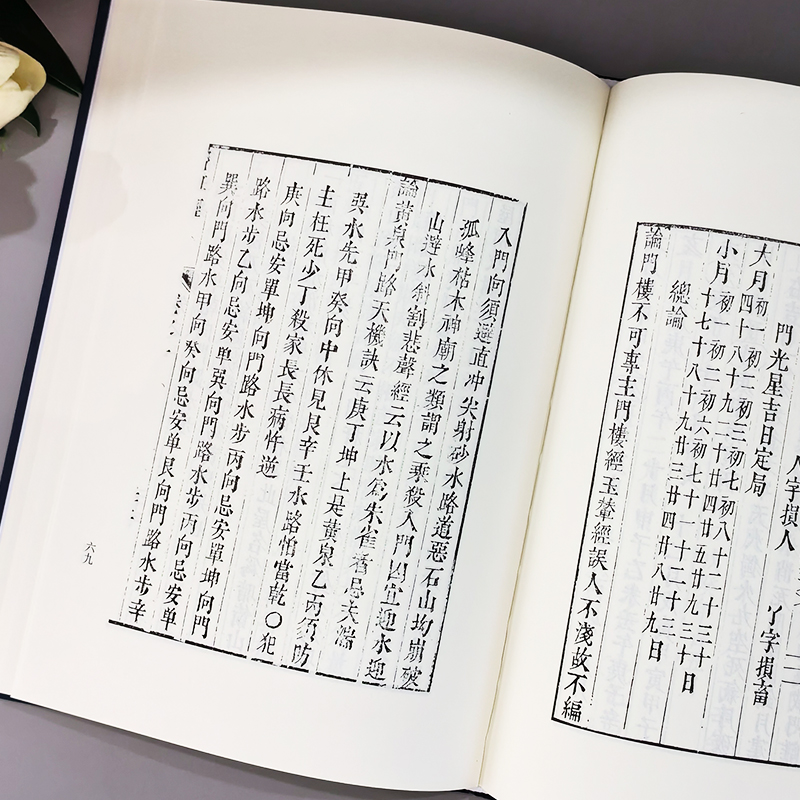 人字損人
丫字損畜
門光星吉日定局
大月初一初二初三初七初八十二十三十
四十八十九二十廿四廿五廿九三十日
小月初一初二初六初七十一十二十三
十七十八十九廿三廿四廿八廿九日
總論
論門樓不可專主門樓經玉輦經誤人不淺故不編
入門向須避直冲尖射砂水路道惡石山坳崩破
孤峰枯木神廟之類謂之乘殺入門凶宜迎水迎
山避水斜割悲聲經云以水爲朱雀者忌夫湍
論黃泉門路天機訣云庚丁坤上是黃泉乙丙須防
巽水先甲癸向中休見艮辛壬水路怕當乾〇犯
主枉死少丁殺家長長病忤逆
庚向忌安單坤向門路水步丙向忌安單坤向門
路水步乙向忌安单巽向門路水步丙向忌安单
巽向門路水甲向癸向忌安单艮向門路水步辛
六九